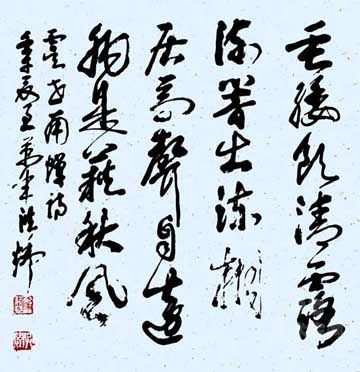 垂緌飲清露
流響出疏桐
居高聲自遠
非是藉秋風
虞世南蟬詩